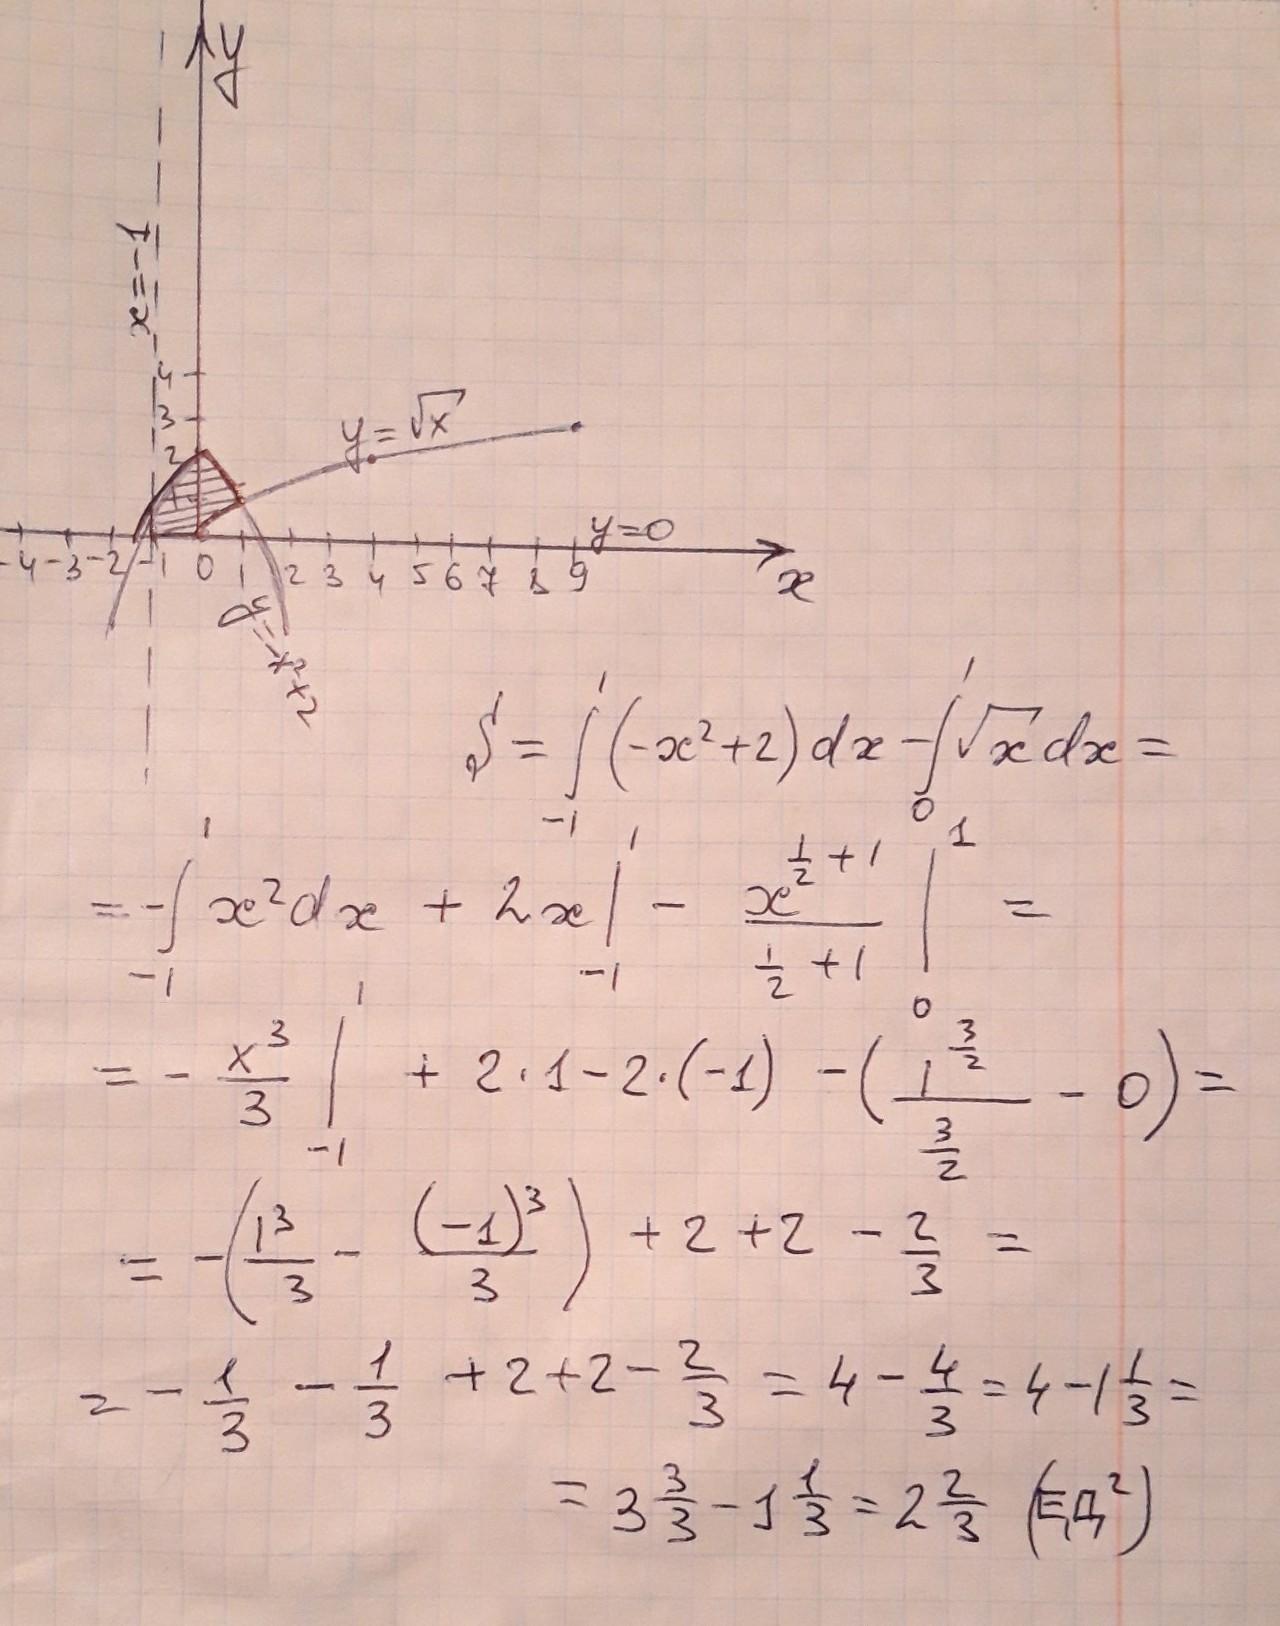 y
x=-1
4
3
2
1
y=√x
y=0
-4 -3 -2 -1 0 1 2 3 4 5 6 7 8 9
x
y=-x²+2
S = ∫₋₁¹ (-x²+2) dx - ∫₀¹ √x dx =
= -∫₋₁¹ x² dx + 2x |₋₁¹ - x^(1/2+1)/(1/2+1) |₀¹ =
= - x³/3 |₋₁¹ + 2·1 - 2·(-1) - (1^(3/2)/(3/2) - 0) =
= -(1³/3 - (-1)³/3) + 2 + 2 - 2/3 =
= - 1/3 - 1/3 + 2 + 2 - 2/3 = 4 - 4/3 = 4 - 1 1/3 =
= 3 3/3 - 1 1/3 = 2 2/3 (ЕД²)